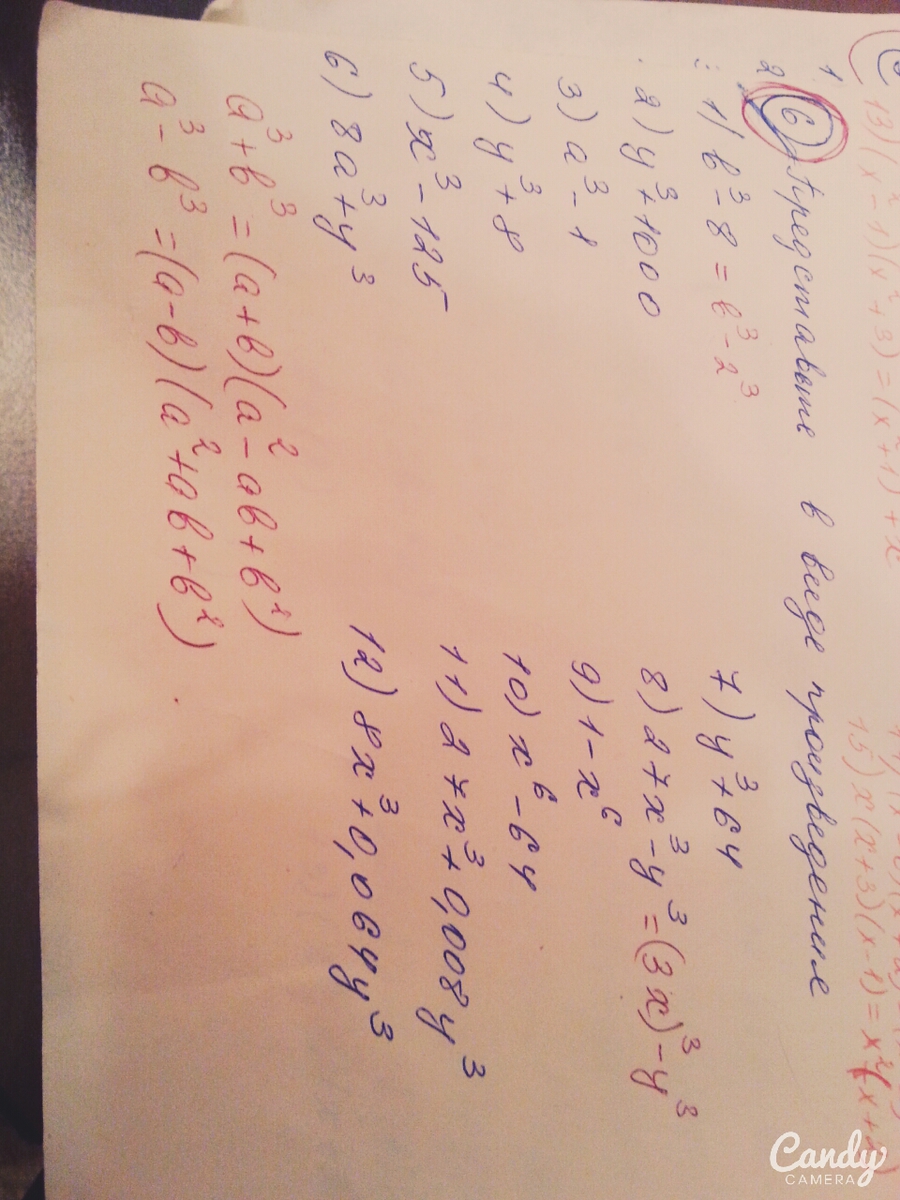 13) (x²-1)(x²+3) = (x²+1)+x
15) x(x+3)(x-1) = x²
6 Представьте в виде произведения
1) b³-8 = b³-2³
2) y³+1000
3) a³-1
4) y³+8
5) x³-125
6) 8a³+y³
7) y³+64
8) 27x³-y³ = (3x)³-y³
9) 1-x⁶
10) x⁶-64
11) 27x³+0,008y³
12) 8x³+0,064y³
a³+b³=(a+b)(a²-ab+b²)
a³-b³=(a-b)(a²+ab+b²)
Candy
CAMERA